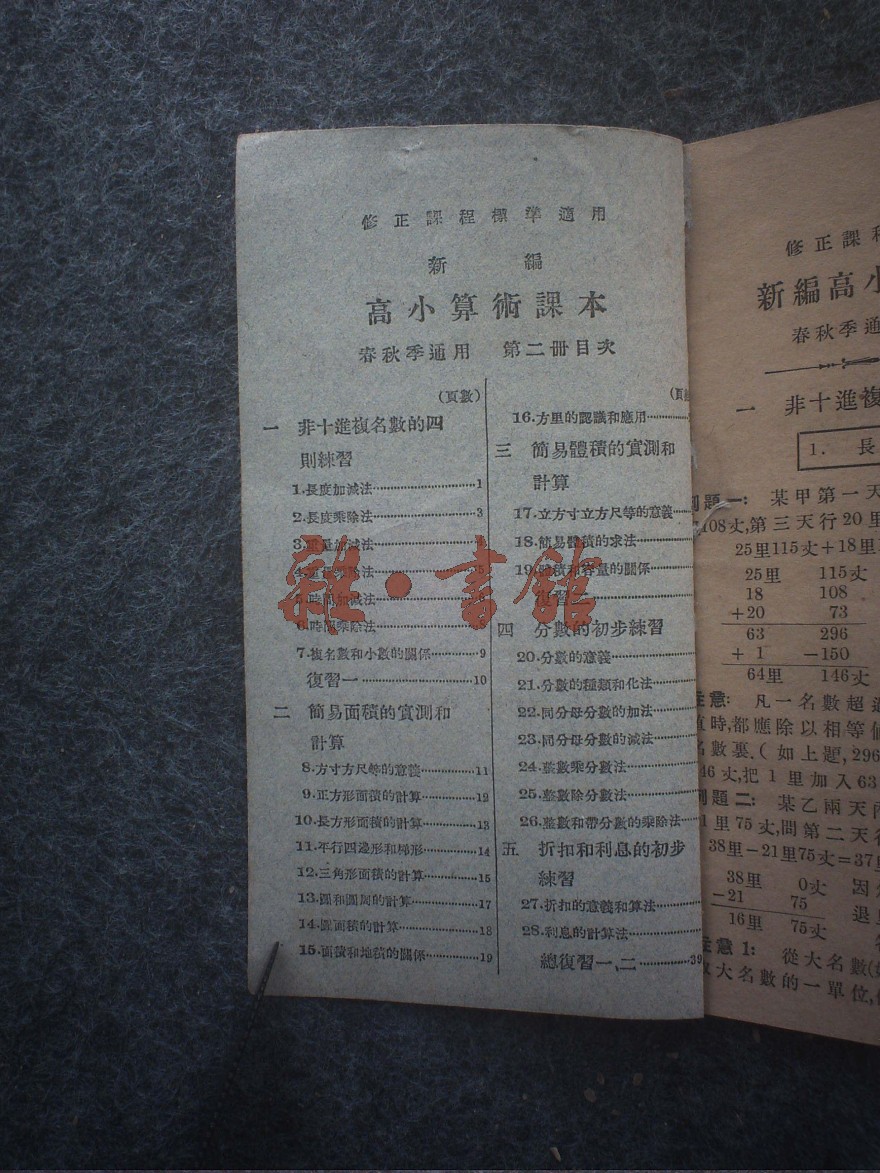 修正課程標準適用
新編
高小算術課本
春秋季通用 第二冊目次
(頁數)
一 非十進複名數的四
則練習
1.長度加減法……1
2.長度乘除法……3
3.重量加減法……
4.重量乘除法……5
5.時間加減法……
6.時間乘除法……
7.複名數和小數的關係……9
復習一……10
二 簡易面積的實測和
計算
8.方寸方尺等的意義……11
9.正方形面積的計算……12
10.長方形面積的計算……13
11.平行四邊形和梯形……14
12.三角形面積的計算……15
13.圓和圓周的計算……17
14.圓面積的計算……18
15.面積和地積的關係……19
(頁
16.方里的認識和應用……
三 簡易體積的實測和
計算
17.立方寸立方尺等的意義……
18.簡易體積的求法……
19.體積和容量的關係……
復習
四 分數的初步練習
20.分數的意義……
21.分數的種類和化法……
22.同分母分數的加法……
23.同分母分數的減法……
24.整數乘分數法……
25.整數除分數法……
26.整數和帶分數的乘除法……
五 折扣和利息的初步
練習
27.折扣的意義和算法……
28.利息的計算法……
總復習一、二……39
雜·書館
修正課程
新編高小
春秋季通
一 非十進複
1. 長
例題一: 某甲第一天
108丈,第三天行20里
25里115丈+18里
25里 115丈
18 108
+20 73
63 296
+ 1 -150
64里 146丈
注意: 凡一名數超過
直時,都應除以相等值
名數裏.(如上題,296
46丈,把1里加入63
例題二: 某乙兩天
1里75丈,問第二天行
38里-21里75丈=37里
38里 0丈 因
-21 75 退
16里 75丈
注意1: 從大名數
大名數的一單位,